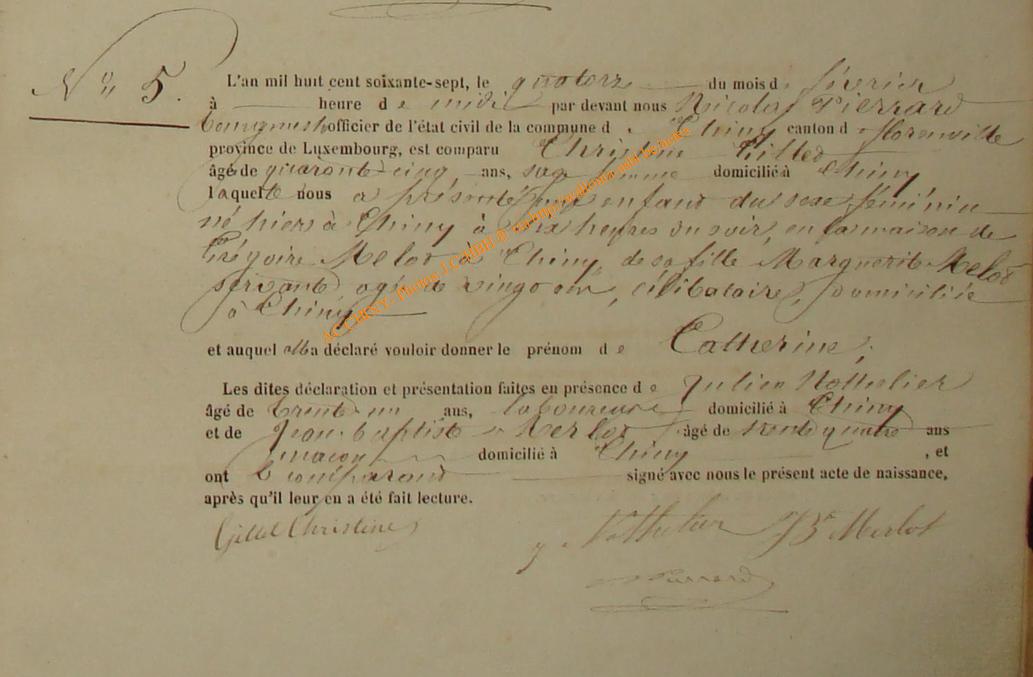 N° 5.
L'an mil huit cent soixante-sept, le quatorze du mois de février
à heure de midi par devant nous Nicolas Pierrard
Bourgmestre officier de l'état civil de la commune de Chiny canton de florenville
province de Luxembourg, est comparu Christine Gillet
âgée de quarante-cinq ans, sage femme domicilié à Chiny
laquelle nous a présenté un enfant du sexe féminin
né hier à Chiny à six heures du soir, en la maison de
Grégoire Melot à Chiny, de sa fille Marguerite Melot
servante agée de vingt ans, célibataire, domiciliée
à Chiny
et auquel elle a déclaré vouloir donner le prénom de Catherine,
Les dites déclaration et présentation faites en présence de Julien Nothelier
âgé de trente-un ans, laboureur domicilié à Chiny
et de Jean-Baptiste Merlot âgé de trente quatre ans
maçon domicilié à Chiny , et
ont le comparant signé avec nous le présent acte de naissance,
après qu'il leur en a été fait lecture.
Gillet Christine J Nothelier JB Merlot
Pierrard